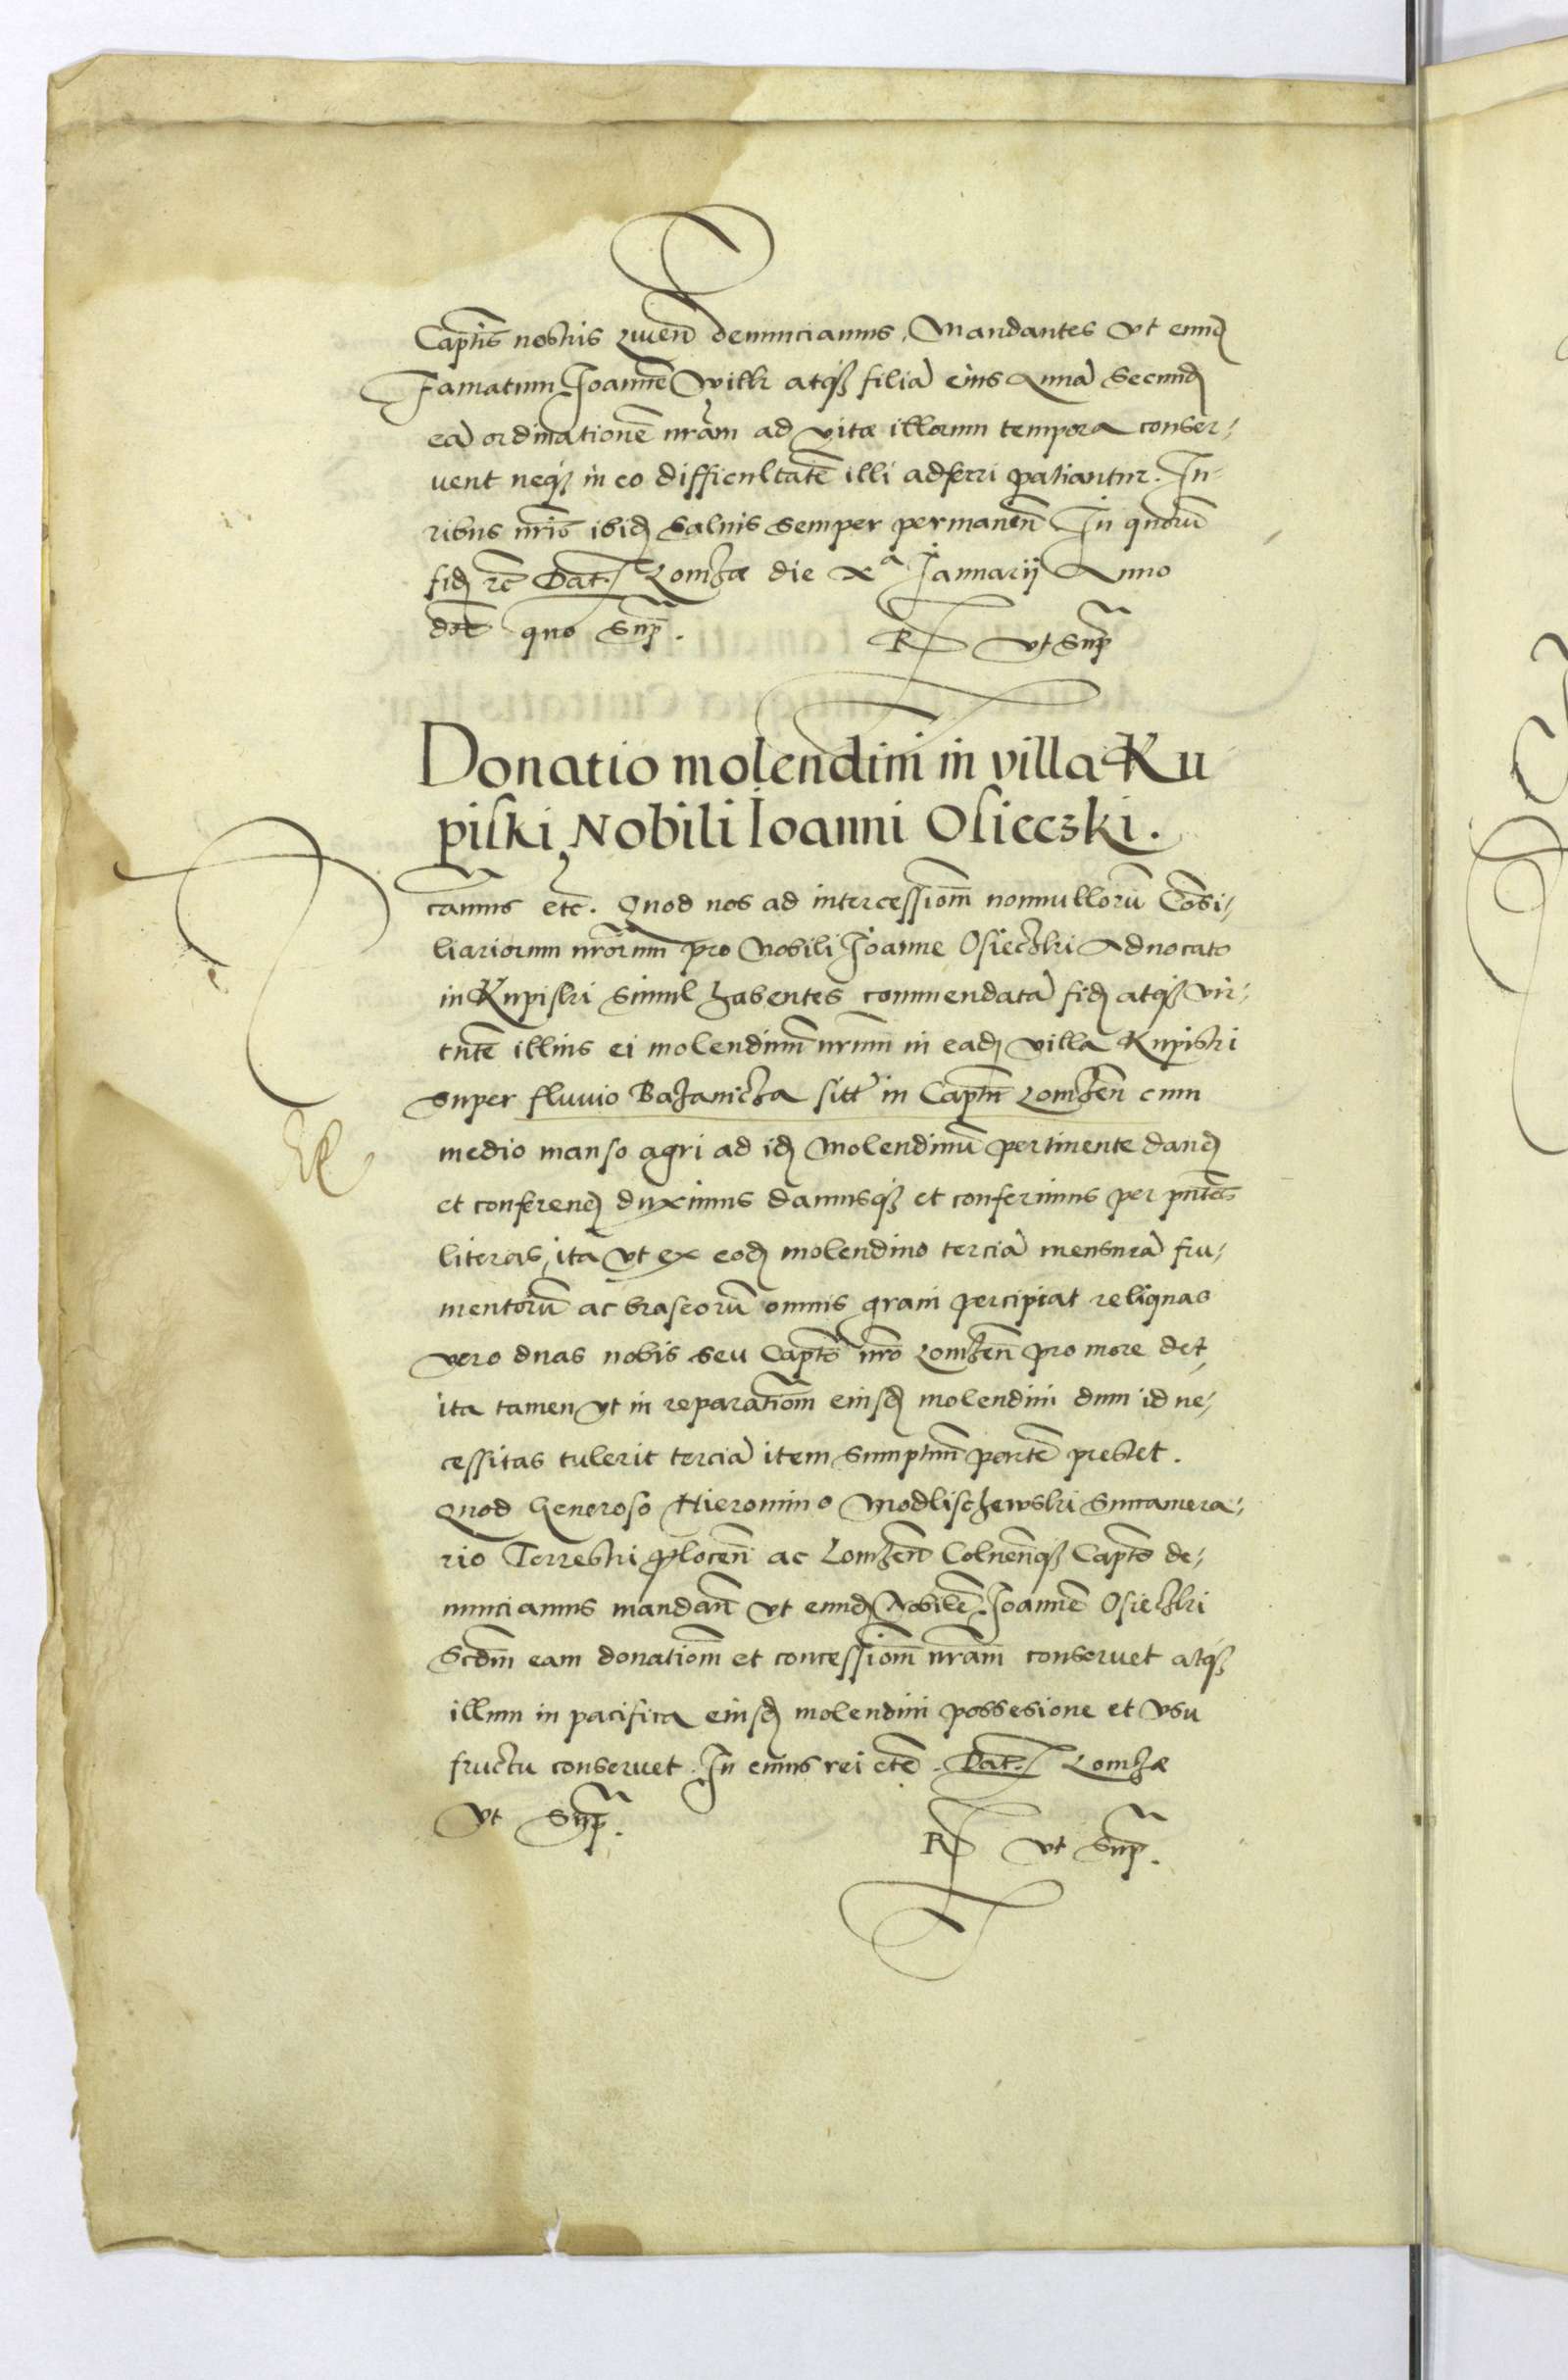 Captīs nostris zwen̄ denunciamus, Mandantes vt eund
Famatum Joannē Wilk atq₃ filiā eius Annā Secund
eā ordinationē nrām ad vitæ illorum tempora conser,
uent neq₃ in eo difficultatē illi adferri patiantur. Iu-
ribus nrīs ibid saluis semper permanen̄ In quorū
fid rē Dat. Lomzæ die Xᵃ Januarij Anno
dōc quo Sup.
R vt Sup
Donatio molendini in villa Ku
piski Nobili Ioanni Osieczki.
camus etc̄. Quod nos ad intercessionē nonnullorū Cōsi,
liariorum nrōrum pro Nobili Joanne Osieczki Aduocato
in Kupiski simul habentes commendatā fid atq₃ vir,
tutē illius ei molendinum nrūm in ead villa Kupiski
super fluuio Bazanicza sitt̄ in Captū Lomzen̄ cum
medio manso agri ad id Molendinū pertinente dand
et conferend duximus damusq₃ et conferimus per pn̄tes
literas, ita vt ex eod molendino terciā mensurā fru,
mentorū ac braseorū omnis grani percipiat reliquas
vero duas nobis seu Captō nrō Lomzen̄ pro more det
ita tamen vt in reparationē eiusd molendini dum id ne,
cessitas tulerit terciā item sumptuū partē prestet.
Quod Generoso Hieronimo Modlischewski Succamera,
rio Terrestri Plocen̄ ac Lomzen̄ Colnen̄q₃ Captō de,
nunciamus mandan̄ vt eund Nobilē Joannē Osieczki
Scdm̄ eam donationē et concessionē nrām conseruet atq₃
illum in pacifica eiusd molendini possesione et vsu
fructu conseruet. In cuius rei etc̄. Dat. Lomzæ
vt Sup.
R vt Sup.